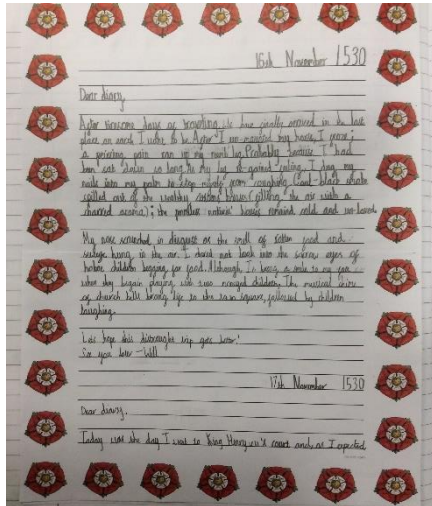 16th November 1530
Dear diary,
After tiresome days of travelling, we have finally arrived in the last
place on earth I want to be. After I un-mounted my horse, I
a piercing pain ran up my numb leg. Probably because I had
been sat down so long. As my leg re-gained feeling, I dug my
nails into my palm to stop myself from coughing. Coal-black smoke
spilled out of the wealthy citizens houses (filling the air with a
charred aroma); the penniless natives' houses remained cold and un-loved.
My nose scrunched in disgust as the smell of rotten food and
sewage hung in the air. I dared not look into the eyes of
children begging for food. Although, It bring a smile to my face
when they began playing with two children. The musical chime
of church bells brang life to the town square, followed by children
laughing.
Lets hope this trip gets better!
See you later - Will
17th November 1530
Dear diary,
Today was the day I went to King Henry court and as I expected